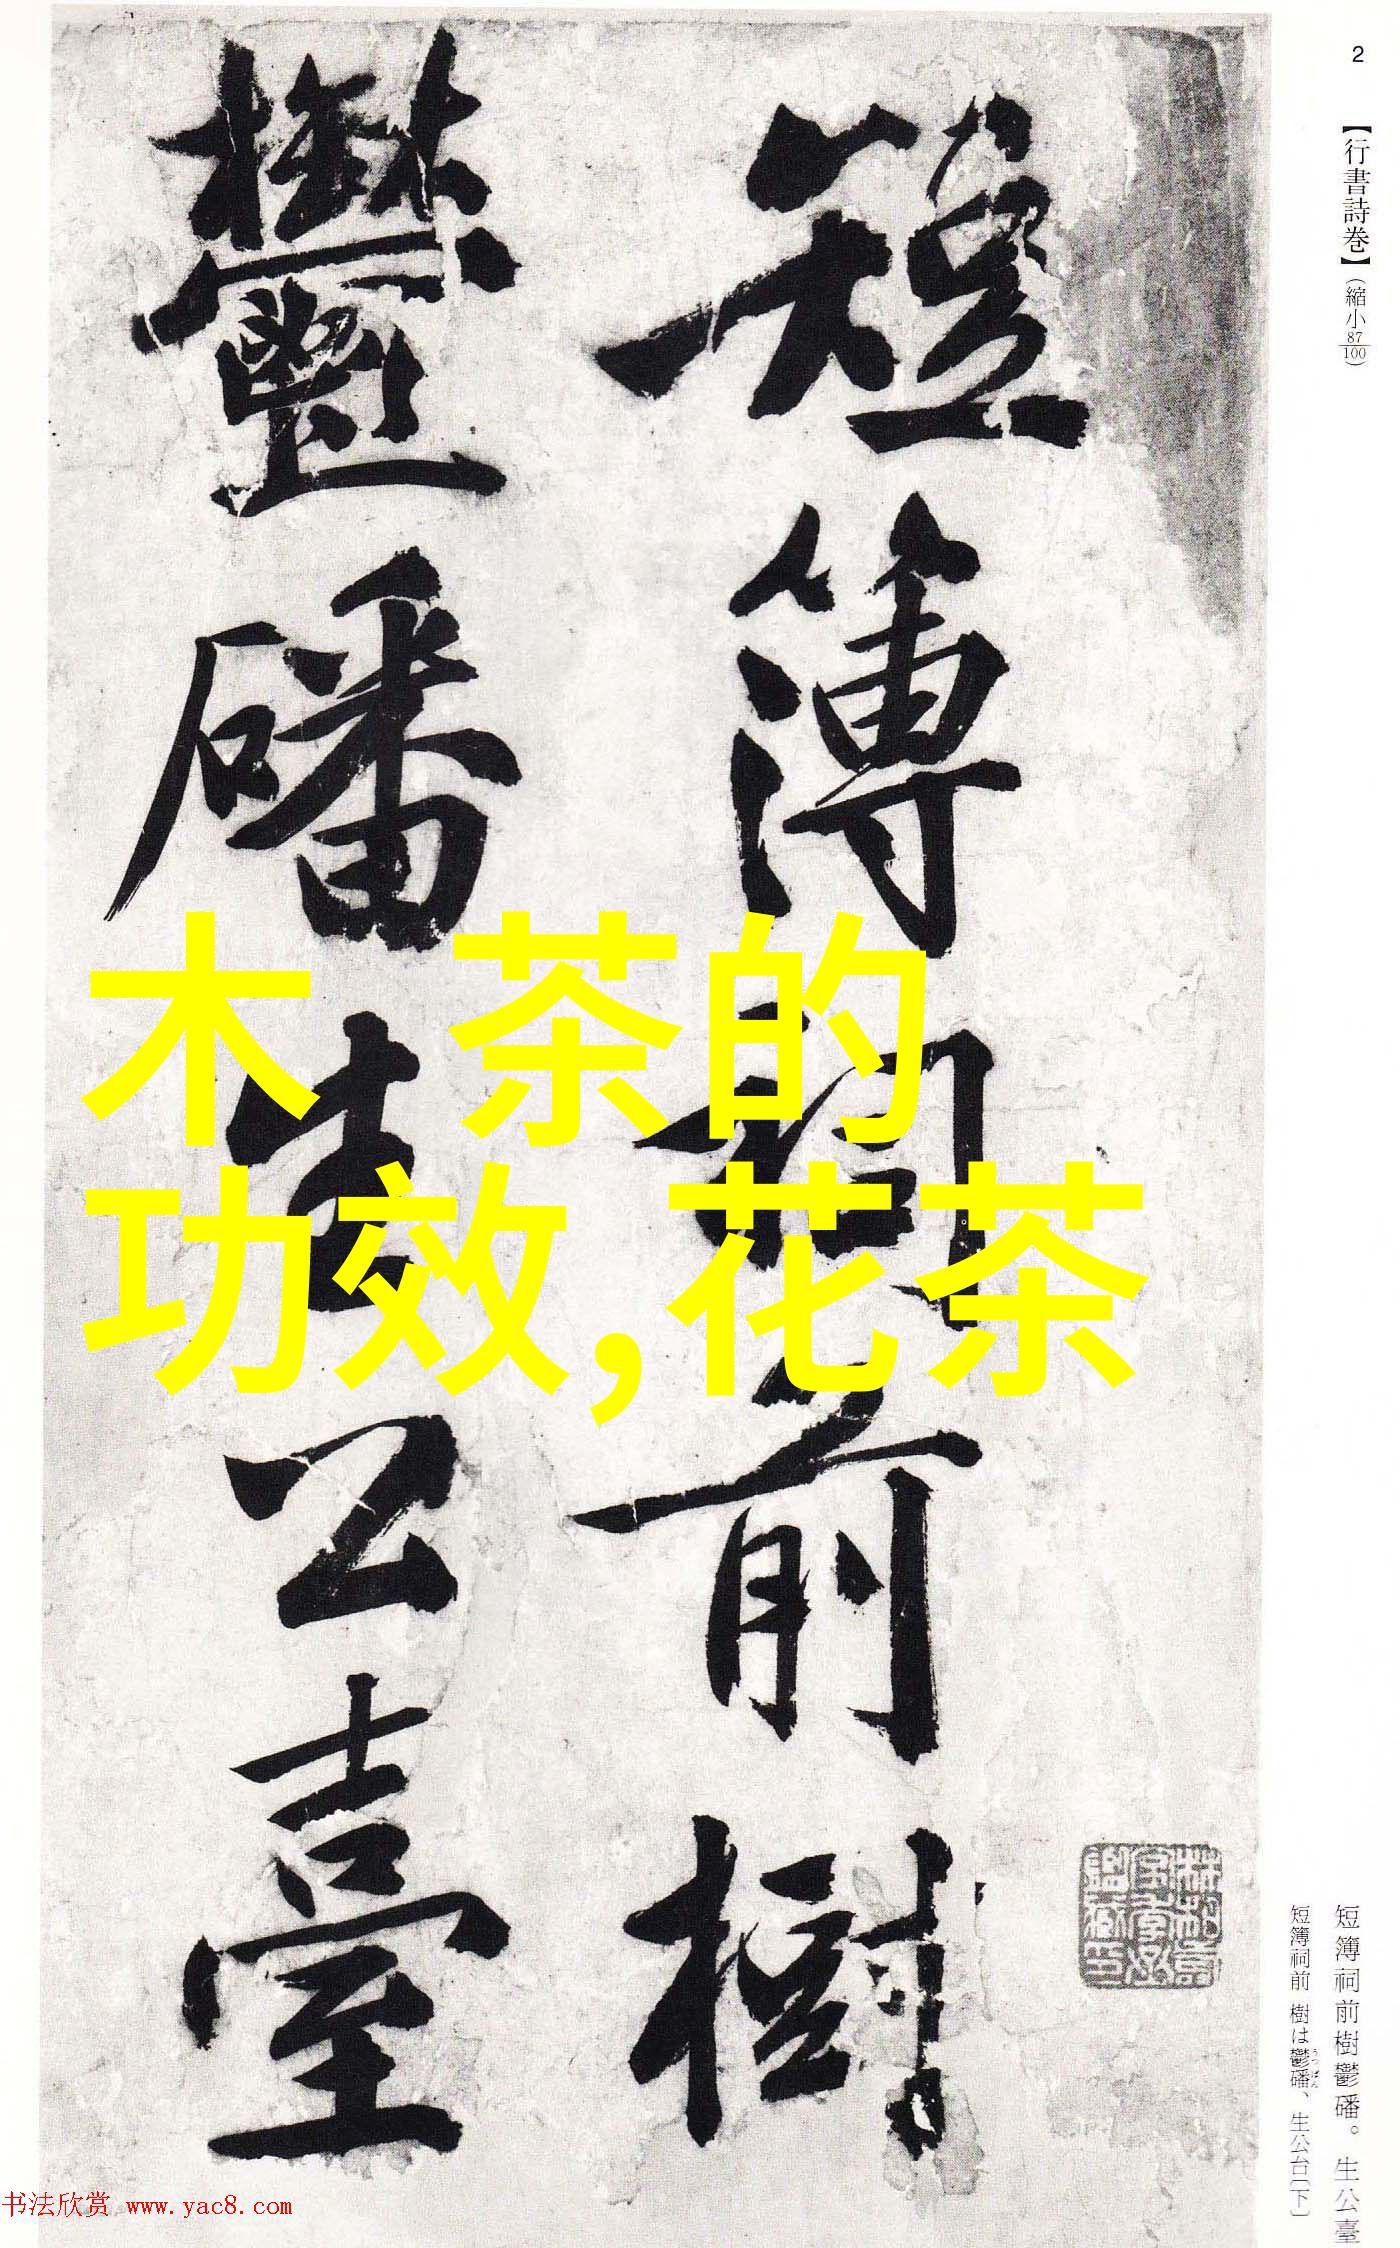 2
【行書詩卷】(縮小87/100)
短簿祠前樹
鬱磻生公臺
木 茶的
功效,花茶
短簿祠前樹鬱磻。生公臺
短簿祠前 樹は鬱磻、生公台〔下〕
うっぱん
书法欣赏 www.yac8.com